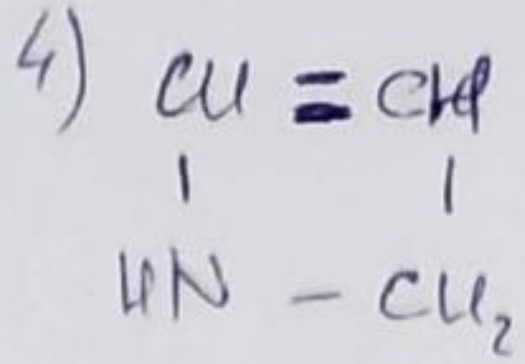 4) CH = CH
| |
HN - CH₂